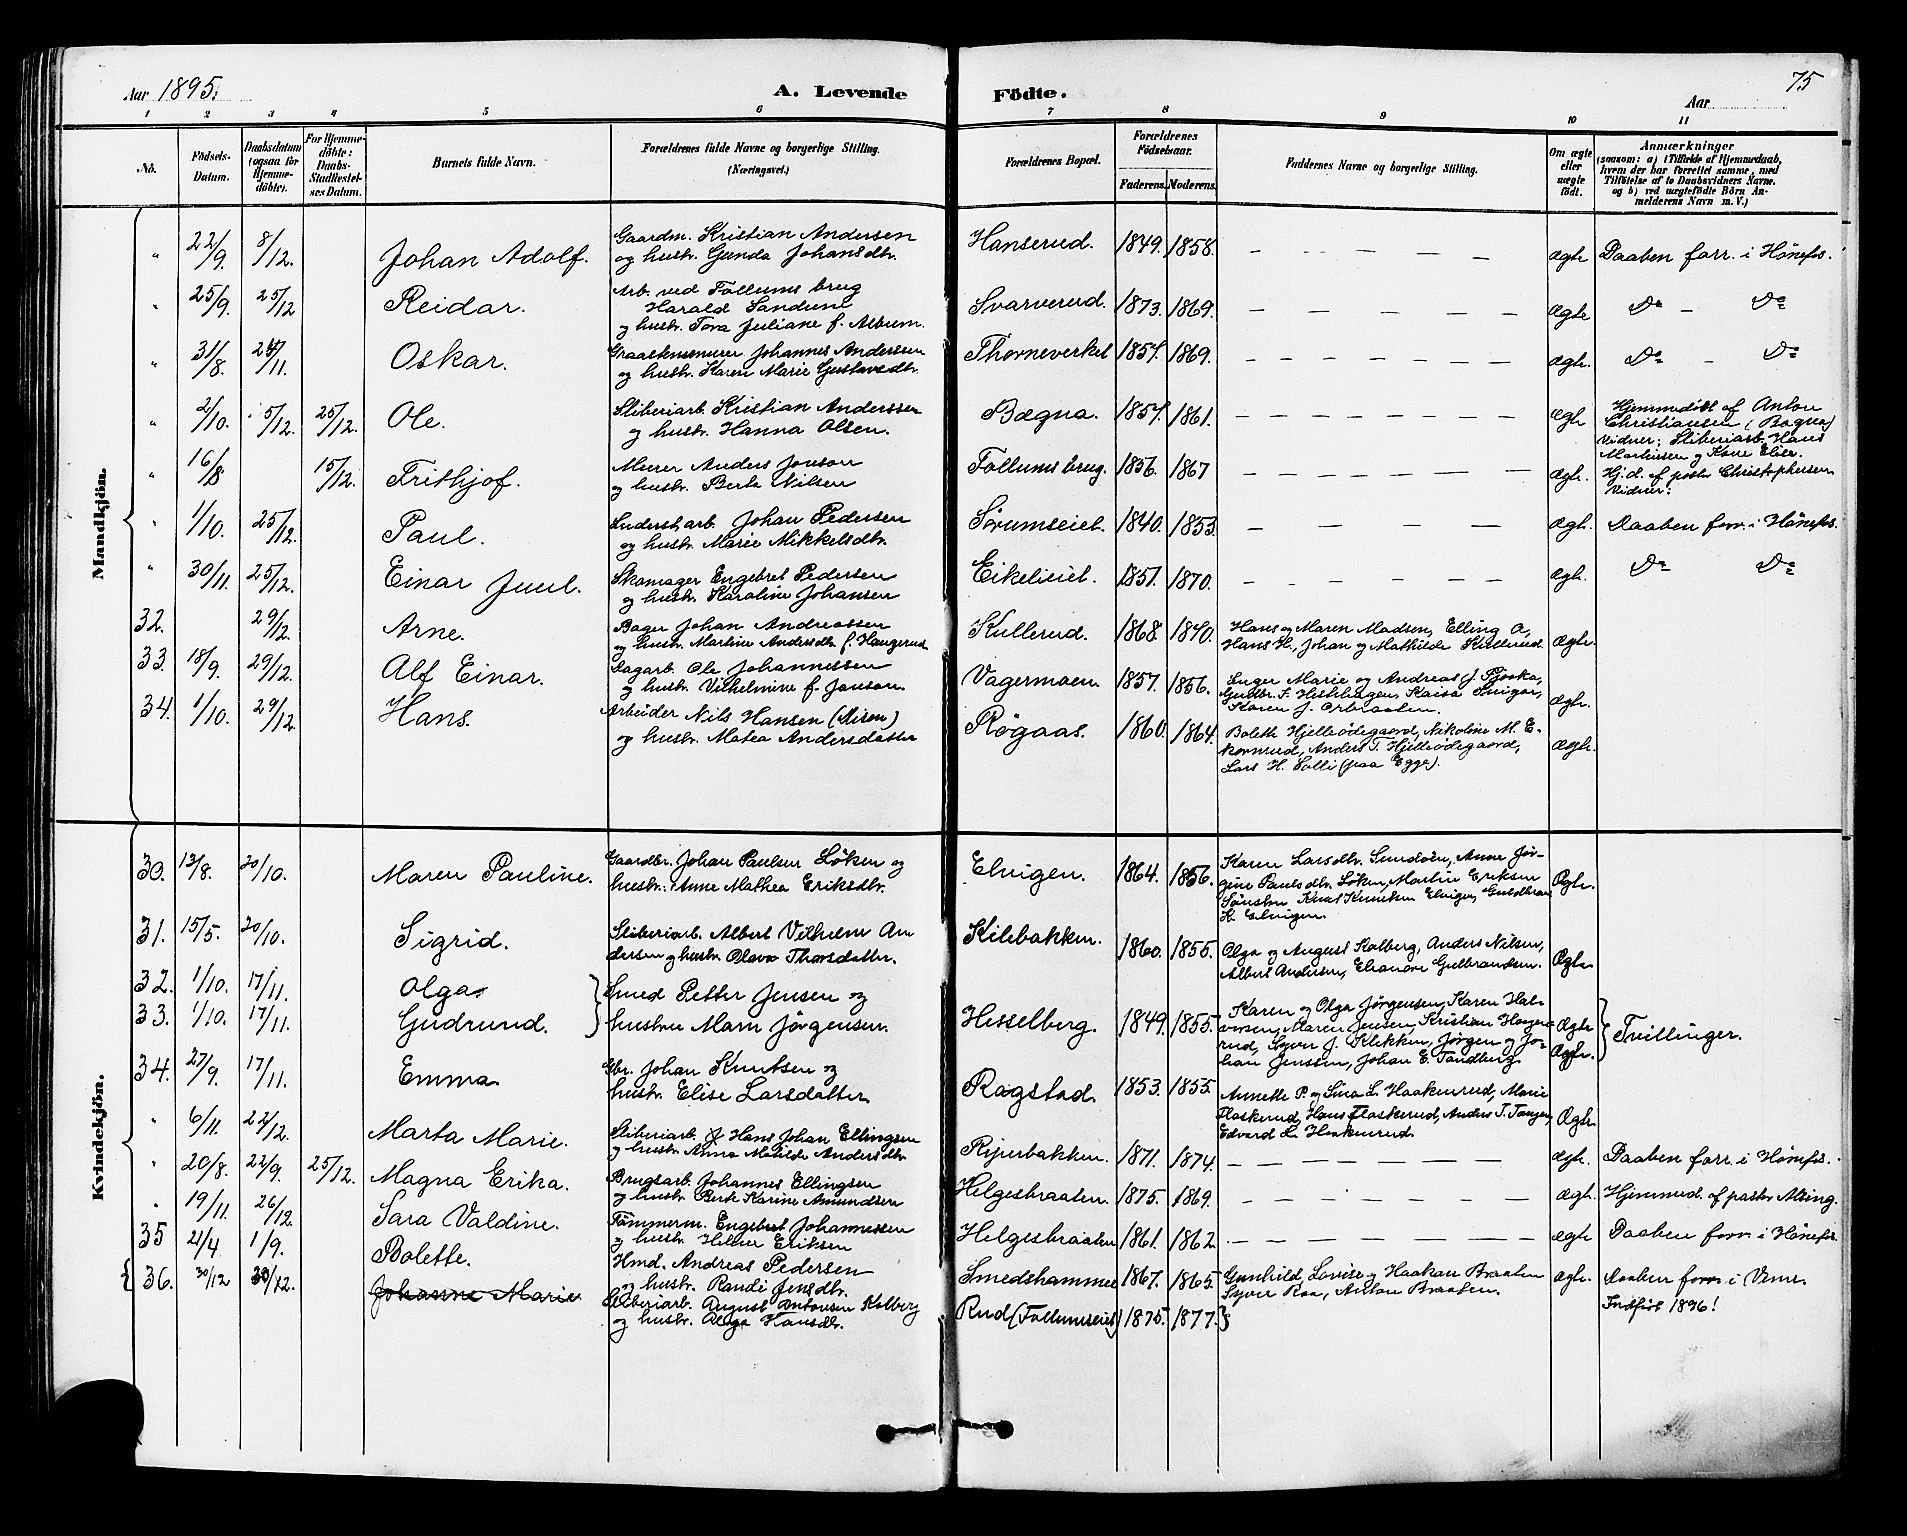 Aar 1895.
A. Levende Födte.
75
Aar
1 2 3 4 5 6 7 8 9 10 11
No.
Födsels-Datum.
Daabsdatum (ogsaa for Hjemmedöbte).
For Hjemmedöbte: Daabs-Stadfæstelses Datum.
Barnets fulde Navn.
Forældrenes fulde Navne og borgerlige Stilling. (Næringsvei.)
Forældrenes Bopæl.
Forældrenes Födselsaar.
Faderens. Moderens.
Faddernes Navne og borgerlige Stilling.
Om ægte eller uægte födt.
Anmærkninger
(saasom: a) i Tilfælde af Hjemmedaab,
hvem der har forrettet samme, med
Tilföielse af to Daabsvidners Navne,
og b) ved uægtefödte Börn An-
melderens Navn m. V.)
Mandkjön.
" 22/9 8/12. Johan Adolf. Gaardm. Kristian Andersen og hustr. Gunda Johansdtr. Hanserud. 1849. 1858. — — — — — ægte Daaben forr. i Hönefos.
" 25/9. 25/12 Reidar. Arb. ved Follums brug Harald Sandum og hustr. Tora Juliane f. Album. Svarverud. 1873. 1869. — — — — — — ægte Do — Do
" 31/8. 11. Oskar. Johannes Andersen og hustr. Karen Marie Gustavsdtr. Thorneverket 1857. 1869. — — — — — — ægte. Do — Do
" 2/10. 5/12. 25/12. Ole. Sliberiarb. Kristian Anderssen og hustr. Hanna Olsen. Bægna. 1857. 1861. — — — — — — — ægte Hjemmedöbt af Anton Christiansen (Bægna) Vidner: Sliberiarb. Hans Martinsen og Kone Elise.
" 16/8 15/12. Frithjof. Murer Anders Jonson og hustr. Berte Nilsen Follums brug. 1856. 1867 — — — — — — — ægte. Hj.d. af pastor Christophersen Vidner:
" 1/10. 25/12. Paul. Johan Pedersen og hustr. Marie Mikkelsdtr. Sörumseiet. 1840. 1853. — — — — ægte. Daaben forr. i Hönefos.
" 30/11. 25/12. Einar Juul. Skomager Engebret Pedersen og hustr. Karoline Johansen Eikelieiet. 1851. 1870. — — — — — — ægte. Do Do
32. 29/12. Arne. Bager Johan Andreassen og hustr. Martine Andersdtr. f. Haugerud Kullerud. 1868. 1840. Hans og Maren Madsen, Elling O, Hans H., Johan og Mathilde Kullerud. ægte.
33. 18/9. 29/12. Alf Einar. Dagarb. Ole Johannessen og hustr. Vilhelmine f. Jonson. Vagermoen. 1857. 1856. Inger Marie og Andreas J. Gudbr. F. Kaisa Karen J. ægte.
34. 1/10. 29/12. Hans. Arbeider Nils Hansen (Moen) og hustr. Matea Andersdatter Rögaas. 1860. 1864. Bolette Hjelleödegaard, Nikoline M. Ekornrud, Anders T. Hjelleödegaard, Lars H. Solli (paa Egge). ægte.
Kvindekjön.
30. 13/8. 20/10. Maren Pauline. Gaardbr. Johan Paulsen Löken og hustr. Anne Mathea Eriksdtr. Elvigen. 1864. 1856. Karen Larsdtr. Sundöen, Anne Jör- gine Paulsdtr. Löken, Martin Eriksen Knut Knutsen Elvigen, Guldbran K. Elvigen. Ægte.
31. 15/5. 20/10. Sigrid. Sliberiarb. Albert Vilhelm An- dersen og hustr. Olava Thorsdatter. Kilebakken. 1860. 1855. Olga og August Kolberg, Anders Nilsen, Albert Andersen, Eleanore Gulbrandsen. Ægte.
32. 1/10. 17/11. Olga.
33. 1/10. 17/11. Gudrund. Smed Petter Jensen og hustru Marn Jörgensen. Hesselberg. 1849. 1855. Karen og Olga Jörgensen, Karen Hal- vorsen, Maren Jensen, Kristian Hauge- rud, Syver J. Klekken, Jörgen og Jo- han Jenssen, Johan E. Tandberg. Ægte Ægte. Tvillinger.
34. 27/9. 17/11. Emma. Gbr. Johan Knutsen og hustr. Elise Larsdatter. Ragstad. 1853. 1855. Annette P. og Lina L. Haakenrud, Marie Flaskerud, Hans Flaskerud, Anders T. Tangen, Edvard L. Haakenrud. Ægte.
" 6/11. 22/12. Marta Marie. Sliberiarb. Hans Johan Ellingsen og hustr. Anna Matilde Andersdtr. Ripebakken. 1871. 1874. — — — — — — ægte. Daaben forr. i Hönefos.
" 20/8. 22/9. 25/12. Magna Erika. Brugsarb. Johannes Ellingsen og hustr. Berte Karine Amundsen Helgesbraaten. 1875. 1869. — — — — — — ægte. Hjemmed. af pastor Msing.
" 19/11. 26/12. Sara Valdine. Tömmerm. Engebret Johannessen og hustr. Helene Eriksen Helgesbraaten 1861. 1862. — — — — — — ægte Daaben forr. i Hönefos.
35 21/4. 1/9. Bolette. Hmd. Andreas Pedersen og hustr. Randi Jensdtr. Smedshammer 1867. 1865. Gunhild, Lovise og Haakan Braaten Syver Roa, Anton Braaten. ægte. Daaben forr. i Viker. Indfört 1896!
36. 30/12 30/12. Johanne Marie Sliberiarb. August Antonsen Kolberg og hustr. Olga Hansdtr. Rud (Follumseiet) 1875. 1877.